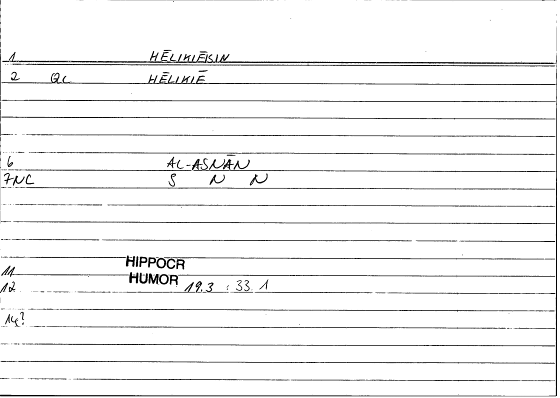 1 HĒLIKIĒISIN
2 QL HĒLIKIĒ
6 AL-ASNĀN
7NC S N N
HIPPOCR
11
HUMOR
12 19.3 : 33 1
14?